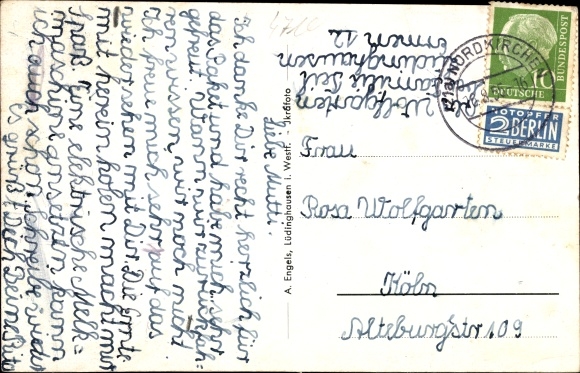 Liebe Mutti.
Ich danke Dir recht herzlich für
das Paket und habe mich sehr
gefreut. Wann wir zurückfah=
ren wissen wir noch nicht
Ich freue mich sehr auf das
wieder sehen mit Dir. Die Ernte
mit herein holen macht mir
Spaß. Eine elektrische Melk=
maschine ansetzen kann
ich auch schon. Schreibe wieder
Es grüßt Dich Deine
4710
Wolfgarten
Familie Teil
Lüdinghausen
Ermen 12
A. Engels, Lüdinghausen i. Westf.
NORDKIRCHEN
DEUTSCHE
BUNDESPOST
10
NOTOPFER
2 BERLIN
STEUERMARKE
Frau
Rosa Wolfgarten
Köln
Alteburgstr 109